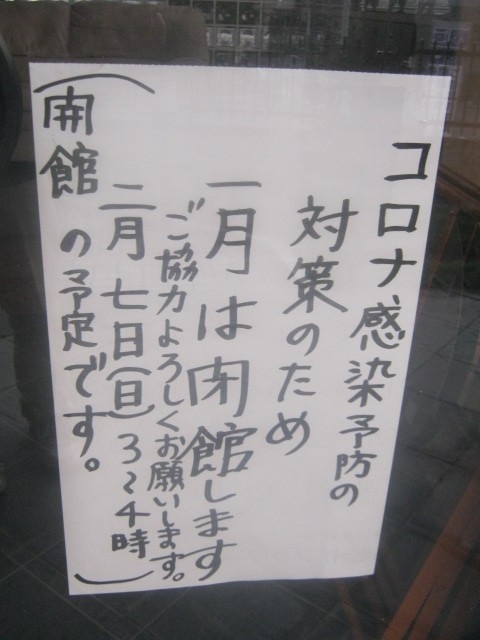 コロナ感染予防の
対策のため
一月は閉館します
ご協力よろしくお願いします。
(二月七日(日)3〜4時
開館の予定です。)